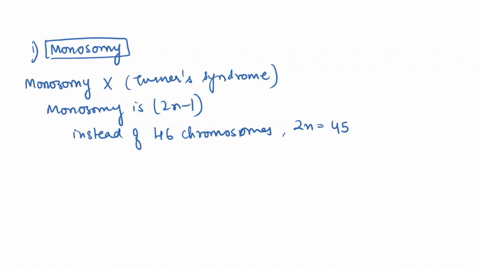 i) Monosomy
Monosomy X (Turner's syndrome)
Monosomy is (2n-1)
instead of 46 chromosomes, 2n = 45